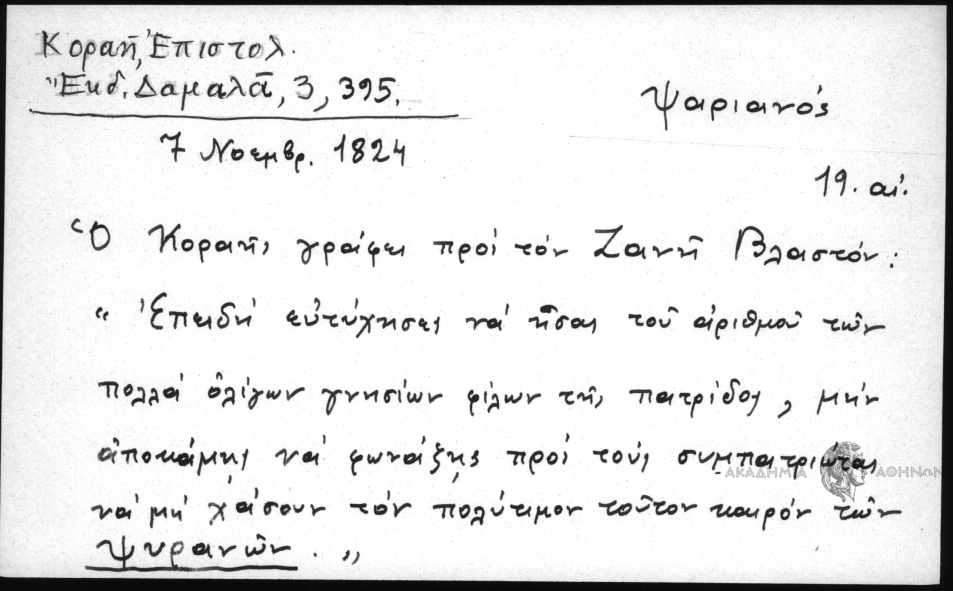 Κοραῆ, Ἐπιστολ.
Ἔκδ. Δαμαλᾶ, 3, 395.
Ψαριανός
7 Νοεμβρ. 1824
19. αἰ.
Ὁ Κοραῆς γράφει πρὸς τὸν Ζαννῆ Βλαστόν:
"Ἐπειδὴ εὐτύχησες νὰ ἦσαι τοῦ ἀριθμοῦ τῶν
πολλὰ ὀλίγων γνησίων φίλων τῆς πατρίδος, μὴν
ἀποκάμῃς νὰ φωνάξῃς πρὸς τοὺς συμπατριώτας
ΑΚΑΔΗΜΙΑ ΑΘΗΝΩΝ
νὰ μὴ χάσουν τὸν πολύτιμον τοῦτον καιρὸν τῶν
Ψυρανῶν."